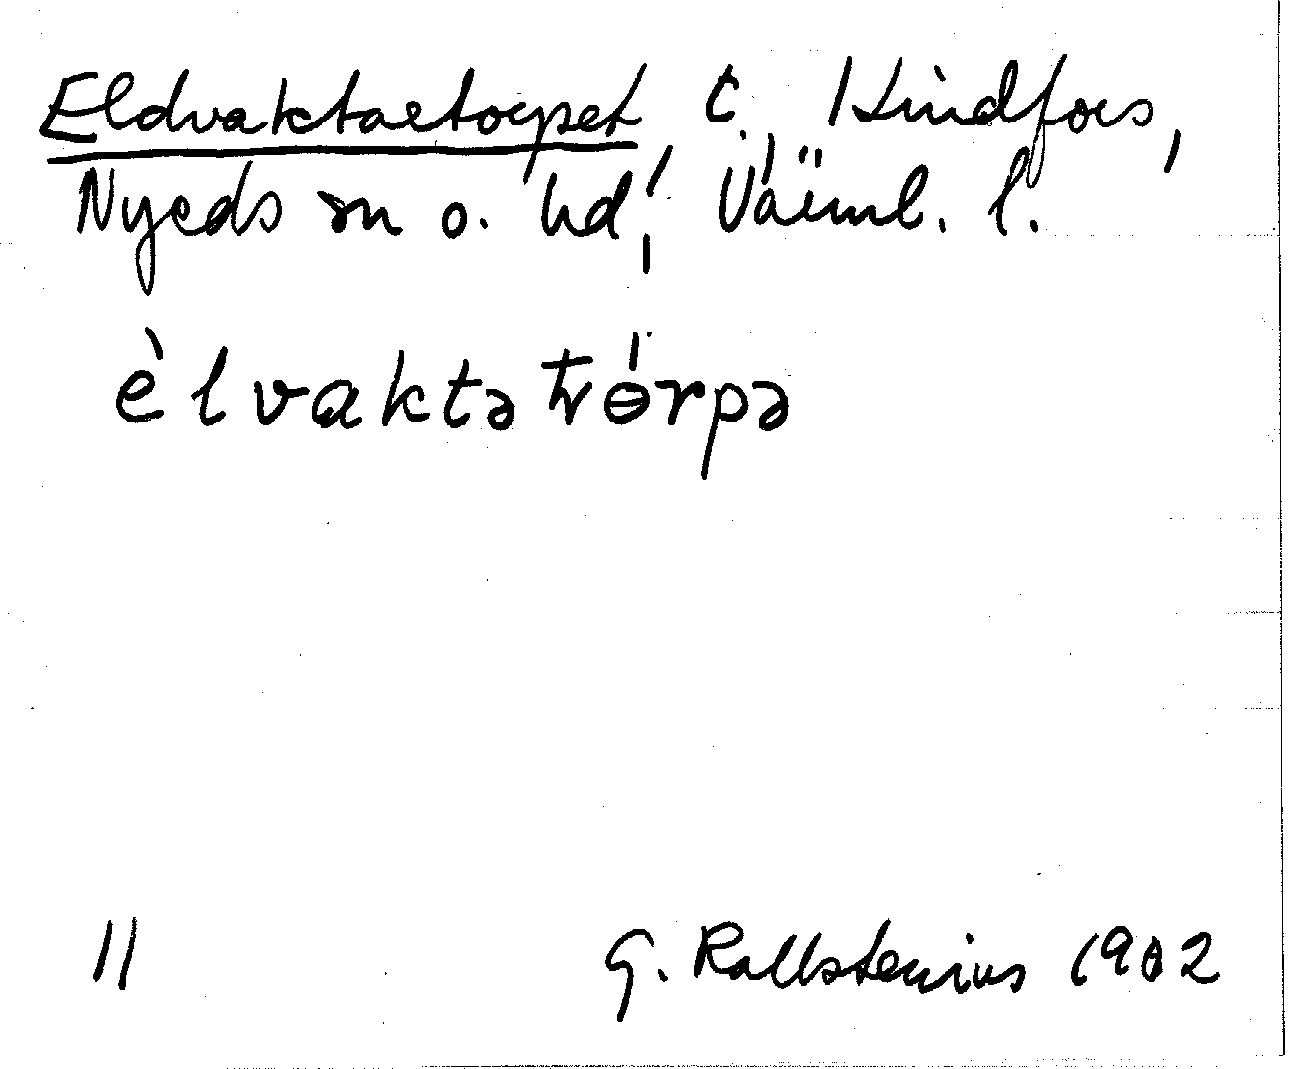 Eldvaktartorpet t. Lindfors,
Nyeds sn o. hd, Värml. l.
èlvaktətɵ́rpə
11 G. Kallstenius 1902